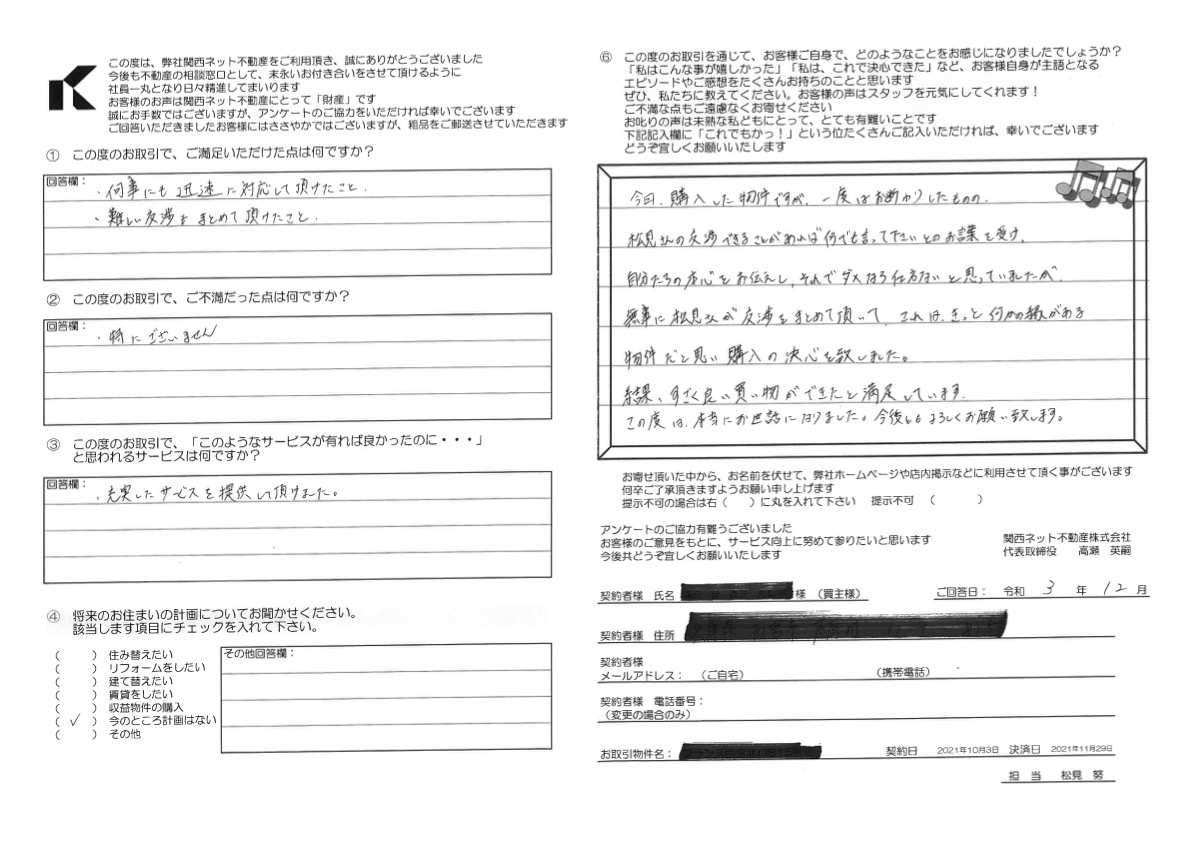 この度は、弊社関西ネット不動産をご利用頂き、誠にありがとうございました
今後も不動産の相談窓口として、末永いお付き合いをさせて頂けるように
社員一丸となり日々精進してまいります
お客様のお声は関西ネット不動産にとって「財産」です
誠にお手数ではございますが、アンケートのご協力をいただければ幸いでございます
ご回答いただきましたお客様にはささやかではございますが、粗品をご郵送させていただきます
① この度のお取引で、ご満足いただけた点は何ですか?
回答欄:
・何事にも迅速に対応して頂けたこと.
・難しい交渉をまとめて頂けたこと.
② この度のお取引で、ご不満だった点は何ですか?
回答欄:
・特にございません
③ この度のお取引で、「このようなサービスが有れば良かったのに・・・」
と思われるサービスは何ですか?
回答欄:
・充実したサービスを提供して頂けました。
④ 将来のお住まいの計画についてお聞かせください。
該当します項目にチェックを入れて下さい。
( ) 住み替えたい
( ) リフォームをしたい
( ) 建て替えたい
( ) 賃貸をしたい
( ) 収益物件の購入
( ✓ ) 今のところ計画はない
( ) その他
その他回答欄:
⑥ この度のお取引を通じて、お客様ご自身で、どのようなことをお感じになりましたでしょうか?
「私はこんな事が嬉しかった」「私は、これで決心できた」など、お客様自身が主語となる
エピソードやご感想をたくさんお持ちのことと思います
ぜひ、私たちに教えてください。お客様の声はスタッフを元気にしてくれます!
ご不満な点もご遠慮なくお寄せください
お叱りの声は未熟な私どもにとって、とても有難いことです
下記記入欄に「これでもかっ!」という位たくさんご記入いただければ、幸いでございます
どうぞ宜しくお願いいたします
今回、購入した物件ですが、一度はお断わりしたものの.
松見さんの交渉できることがあれば何でも言って下さいとのお言葉を受け.
自分たちの本心をお伝えし、それでダメなら仕方ないと思っていましたが.
無事に松見さんが交渉をまとめて頂いて、これは、きっと何かの縁がある
物件だと思い購入の決心を致しました。
結果、すごく良い買い物ができたと満足しています.
この度は、本当にお世話になりました。今後ともよろしくお願い致します。
お寄せ頂いた中から、お名前を伏せて、弊社ホームページや店内掲示などに利用させて頂く事がございます
何卒ご了承頂きますようお願い申し上げます
提示不可の場合は右( )に丸を入れて下さい 提示不可 ( )
アンケートのご協力有難うございました
お客様のご意見をもとに、サービス向上に努めて参りたいと思います
今後共どうぞ宜しくお願いいたします
関西ネット不動産株式会社
代表取締役 高瀬 英嗣
契約者様 氏名 様 (買主様) ご回答日: 令和 3 年 12 月
契約者様 住所
契約者様
メールアドレス: (ご自宅) (携帯電話)
契約者様 電話番号:
(変更の場合のみ)
お取引物件名: 契約日 2021年10月3日 決済日 2021年11月29日
担 当 松見 努